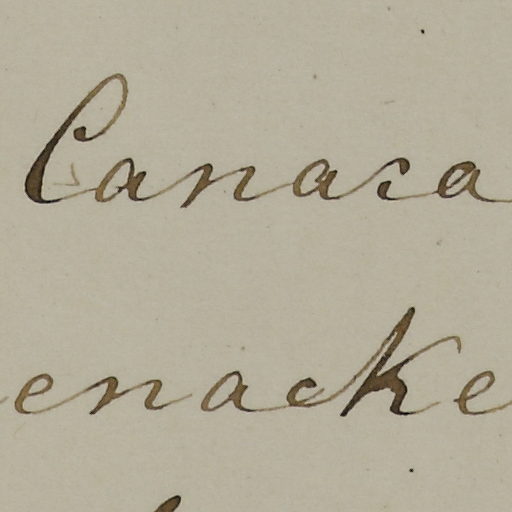 Canasa
enacke